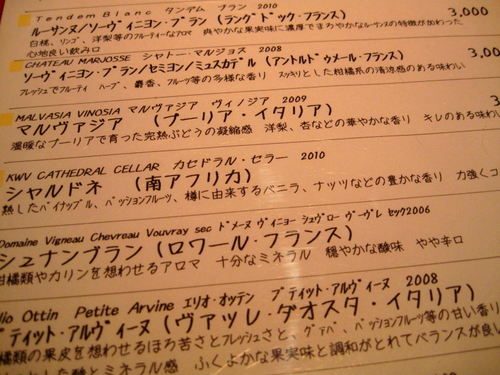 Tendem Blanc タンデム ブラン 2010
ルーサンヌ/ソーヴィニヨン・ブラン (ラングドック・フランス) 3,000
白桃、リンゴ、洋梨等のフルーティーなアロマ 爽やかな果実味に濃厚でまろやかなルーサンヌの特徴が加わった
心地良い飲み口
CHATEAU MARJOSSE シャトー・マルジョス 2008
ソーヴィニヨン・ブラン/セミヨン/ミュスカデル (アントルドゥメール・フランス) 3,00
フレッシュでフルーティ ハーブ、麝香、フルーツ等の多様な香り スッキリとした柑橘系の清涼感のある味わい
MALVASIA VINOSIA マルヴァジア ヴィノジア 2009
マルヴァジア (プーリア・イタリア) 3
温暖なプーリアで育った完熟ぶどうの凝縮感 洋梨、杏などの華やかな香り キレのある味わい
KWV CATHEDRAL CELLAR カセドラル・セラー 2010
シャルドネ (南アフリカ)
熟したパイナップル、パッションフルーツ、樽に由来するバニラ、ナッツなどの豊かな香り 力強くコ
Domaine Vigneau Chevreau Vouvray sec ドメーヌ ヴィニョー シュヴロー ヴーヴレ セック2006
シュナンブラン (ロワール・フランス)
柑橘類やカリンを想わせるアロマ 十分なミネラル 穏やかな酸味 やや辛口
lio Ottin Petite Arvine エリオ・オッテン プティット・アルヴィーヌ 2008
プティット・アルヴィーヌ (ヴァッレ・ダオスタ・イタリア)
橘類の果皮を想わせるほろ苦さとフレッシュさと、グァバ、パッションフルーツ等の甘い香り
とした酸とミネラル感 ふくよかな果実味と調和がとれてバランスが良い